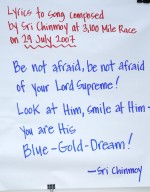 Lyrics to song composed
by Sri Chinmoy at 3,100 Mile Race
on 29 July 2007
Be not afraid, be not afraid
of your Lord Supreme!
Look at Him, smile at Him -
You are His
Blue-Gold-Dream!
-Sri Chinmoy